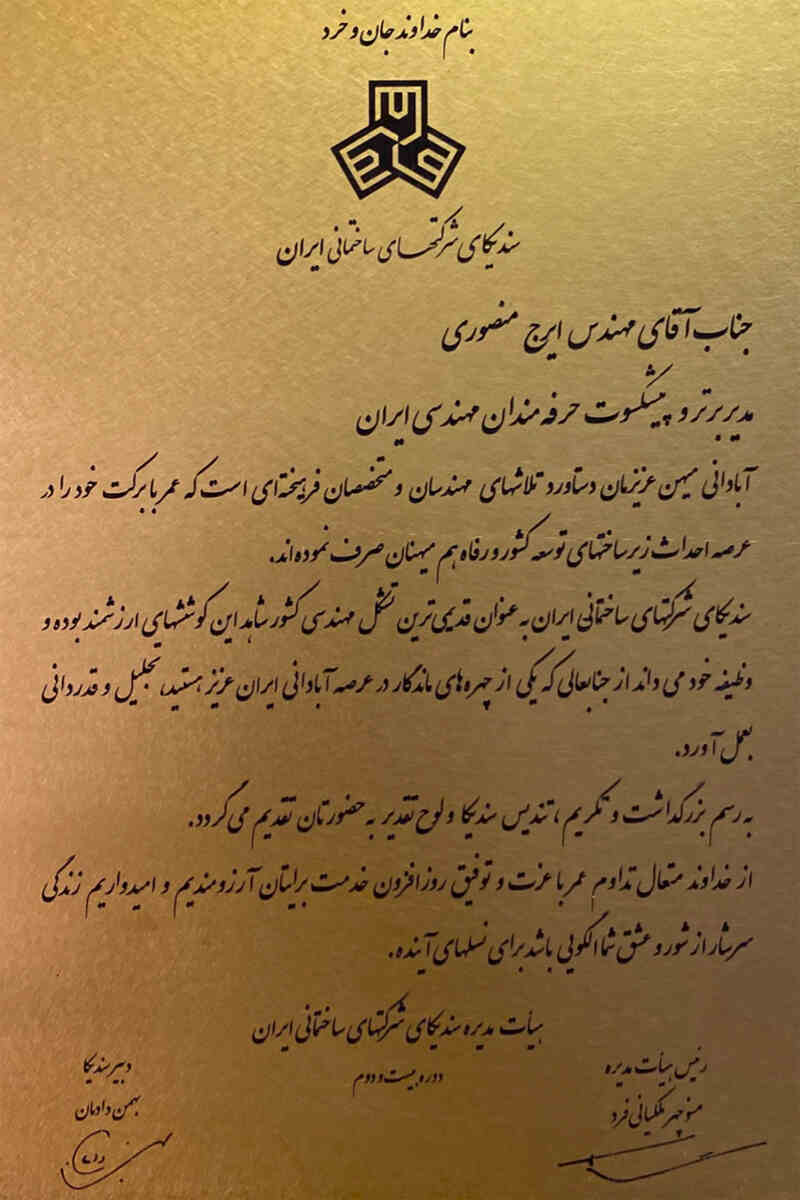 بنام خداوند جان و خرد
سندیکای شرکتهای ساختمانی ایران
جناب آقای مهندس ایرج منصوری
مدیر برتر و پیشکسوت حرفه مندان مهندسی ایران
آبادانی میهن عزیزمان دستاورد تلاشهای مهندسان و متخصصان فرهیخته‌ای است که عمر با برکت خود را در
عرصه احداث زیرساختهای توسعه کشور و رفاه هم میهنان صرف نموده‌اند.
سندیکای شرکتهای ساختمانی ایران به عنوان قدیمی‌ترین تشکل مهندسی کشور شاهد این کوششهای ارزشمند بوده و
وظیفه خود می داند از جنابعالی که یکی از چهره‌های ماندگار در عرصه آبادانی ایران عزیز هستید، تجلیل و قدردانی
بعمل آورد.
به رسم بزرگداشت و تکریم، تندیس سندیکا و لوح تقدیر به حضورتان تقدیم می‌گردد.
از خداوند متعال تداوم عمر با عزت و توفیق روزافزون خدمت برایتان آرزومندیم و امیدواریم زندگی
سرشار از شور و عشق شما الگویی باشد برای نسلهای آینده.
هیأت مدیره سندیکای شرکتهای ساختمانی ایران
دوره بیست و دوم
رئیس هیأت مدیره
منوچهر ملکیانی فرد
دبیر سندیکا
بهمن دادمان